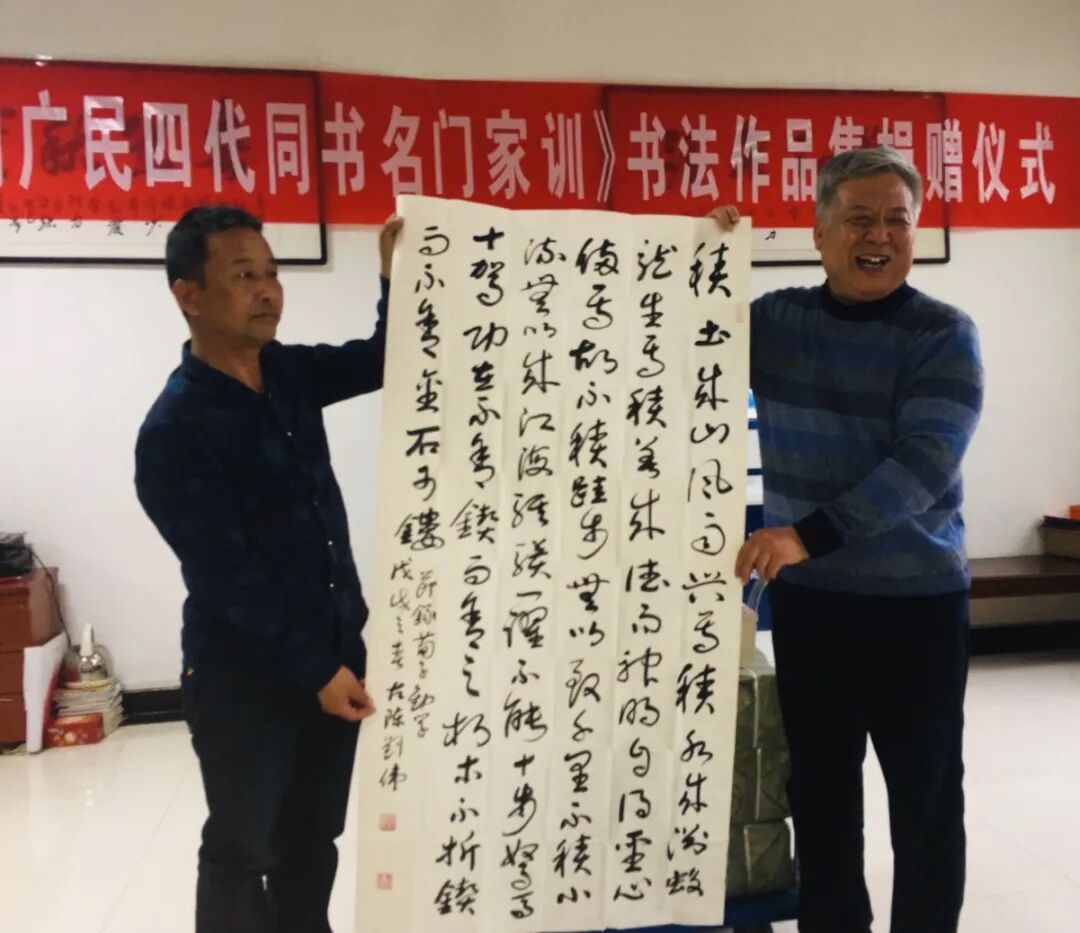 广民四代同书名门家训》书法作品集捐赠仪式
積土成山风雨兴焉積水成渊蛟
龙生焉積善成德而神明自得圣心
備焉故不積跬步無以致千里不積小
流無以成江海骐骥一躍不能十步驽馬
十驾功在不舍鍥而舍之朽木不折鍥
而不舍金石可鏤
节録荀子劝学
戊戌之春古陈劉伟